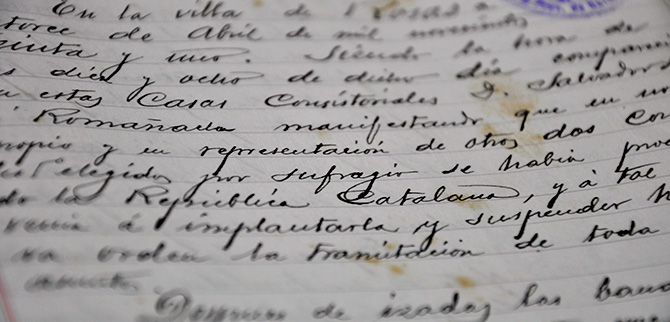 En la villa de Rosas a
torce de Abril de mil novecientos
einta y uno. Siendo la hora de
s diez y ocho de dicho dia compareció
a estas Casas Consistoriales D. Salvador
Romañach manifestando que en no
ropio y en representación de otros dos con
elegidos por sufragio se habia proc
do la República Catalana, y á tal
venia á implantarla y suspender h
va orden la tramitación de toda
asunto.
Despues de izadas las band